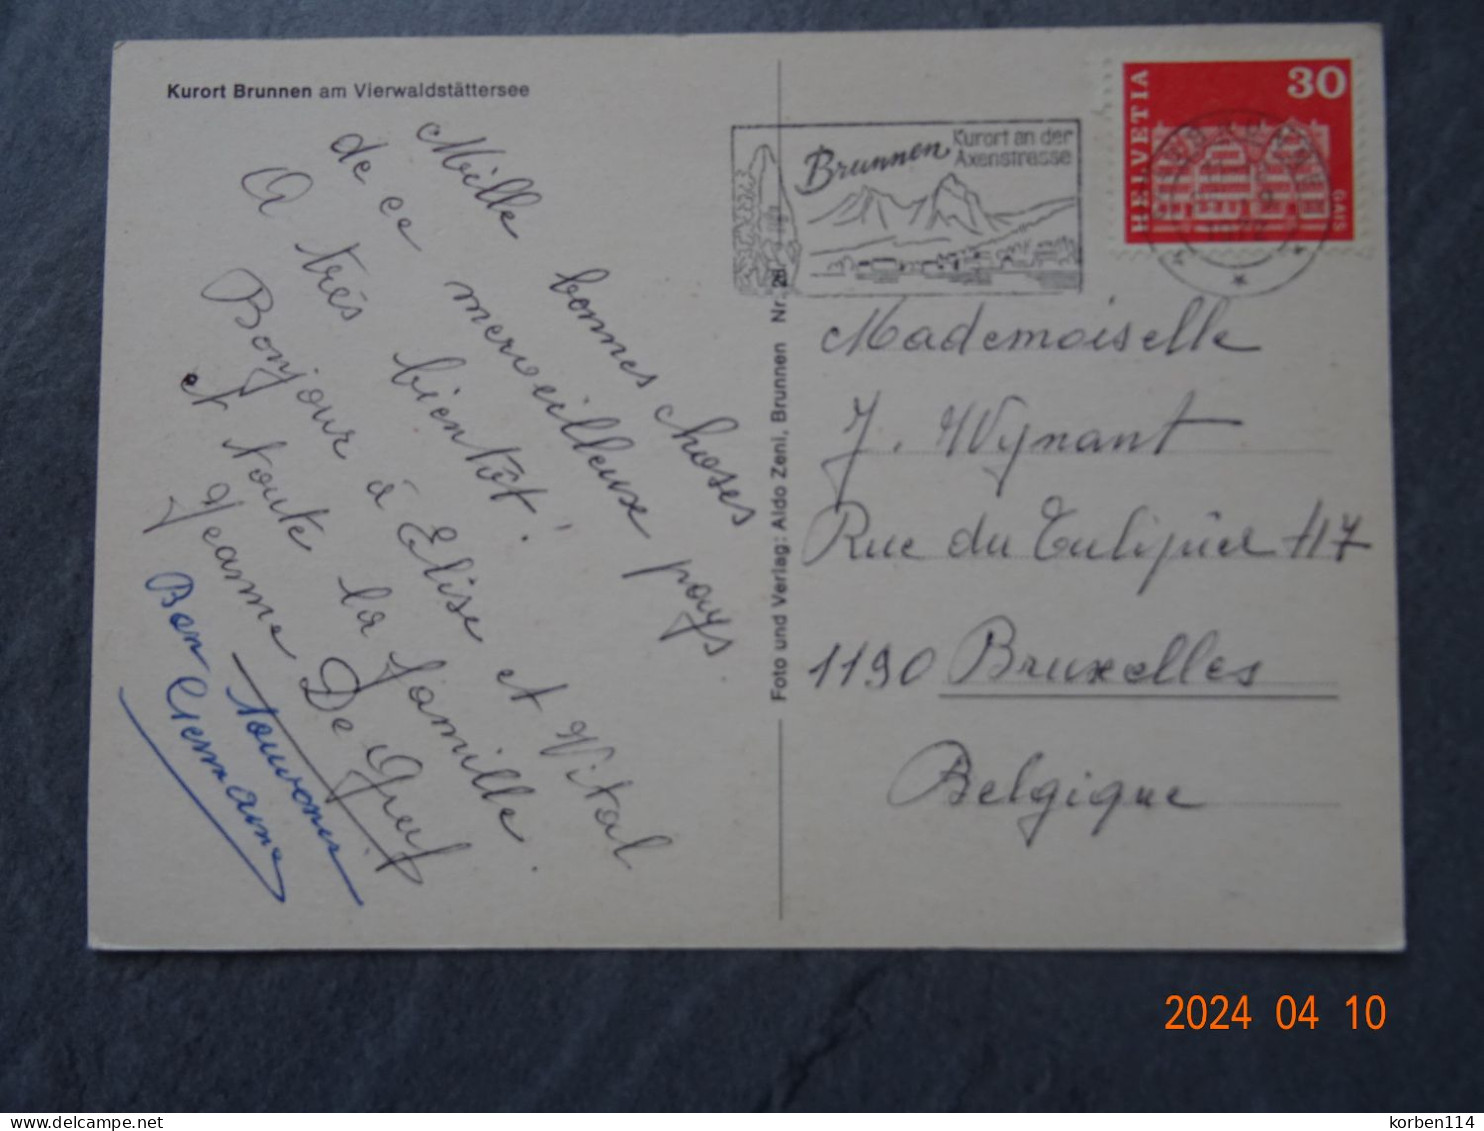 Kurort Brunnen am Vierwaldstättersee
Mille bonnes choses
de ce merveilleux pays
A très bientôt!
Bonjour à Elise et Vital
et toute la famille.
Jeanne De Greef
Bon souvenir
Germaine
Foto und Verlag: Aldo Zeni, Brunnen Nr. 28
Brunnen
Kurort an der
Axenstrasse
HELVETIA
30
GAIS
Mademoiselle
J. Wynant
Rue du Tulipier 117
1190 Bruxelles
Belgique
2024 04 10
korben114